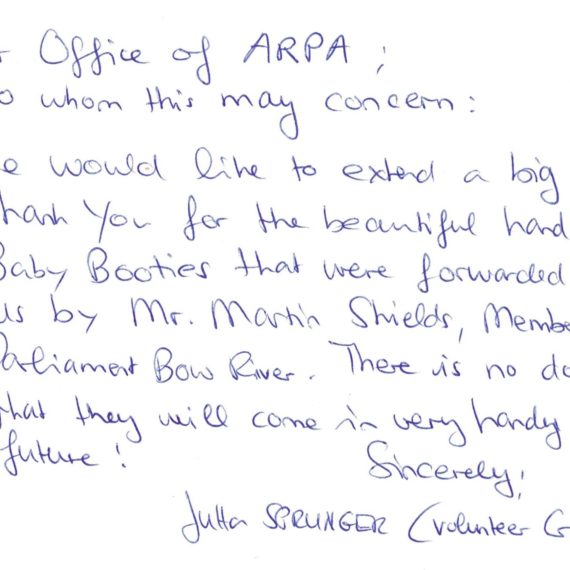 Office of ARPA ;
o whom this may concern :
e would like to extend a big
hank You for the beautiful hand
Baby Booties that were forwarded
us by Mr. Martin Shields, Membe
Parliament Bow River. There is no do
that they will come in very handy
future !
Sincerely,
Jutta SPRUNGER (Volunteer